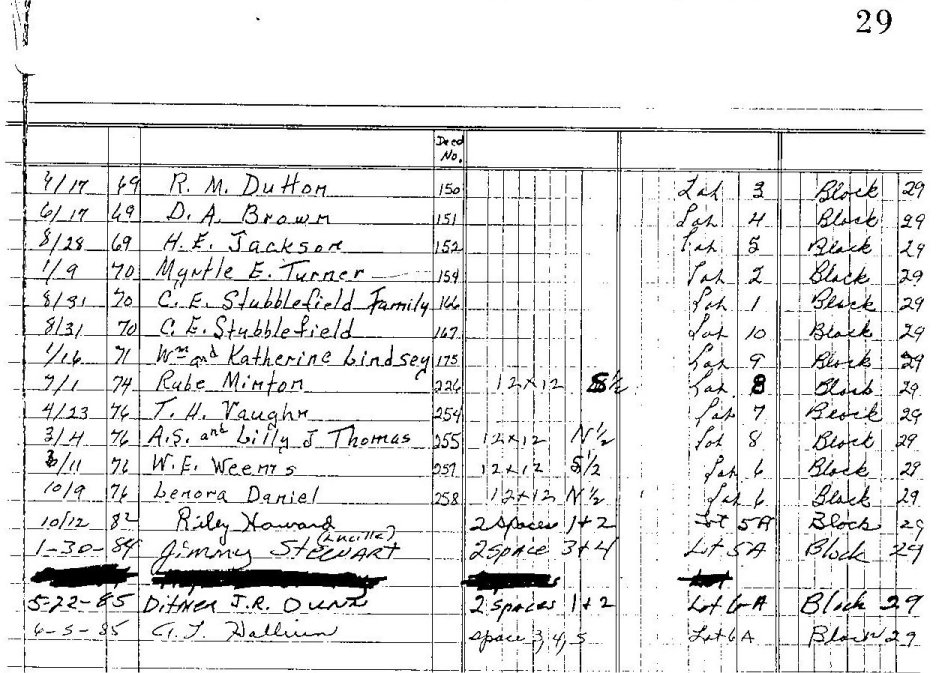 29
Deed No.
4/17 69 R. M. Dutton 150 Lot 3 Block 29
6/17 69 D. A. Brown 151 Lot 4 Block 29
8/28 69 H. E. Jackson 152 Lot 5 Block 29
1/9 70 Myrtle E. Turner 159 Lot 2 Block 29
8/31 70 C. E. Stubblefield Family 166 Lot 1 Block 29
8/31 70 C. E. Stubblefield 167 Lot 10 Block 29
1/16 71 Wm and Katherine Lindsey 175 Lot 9 Block 29
7/1 74 Rube Minton 226 12x12 S½ Lot 8 Block 29
4/23 76 T. H. Vaughn 254 Lot 7 Block 29
3/4 76 A.S. and Lilly J Thomas 255 12x12 N½ Lot 8 Block 29
/11 76 W. E. Weems 257 12x12 S½ Lot 6 Block 29
10/9 76 Lenora Daniel 258 12x12 N½ Lot 6 Block 29
10/12 82 Riley Howard 2 Spaces 1+2 Lot 5A Block 29
1-30-84 Jimmy (Lucille) STEWART 2 space 3+4 Lot 5A Block 29
5-22-85 J.R. 2 spaces 1+2 Lot 6-A Block 29
6-5-85 space 3, 4, 5 Lot 6A Block 29